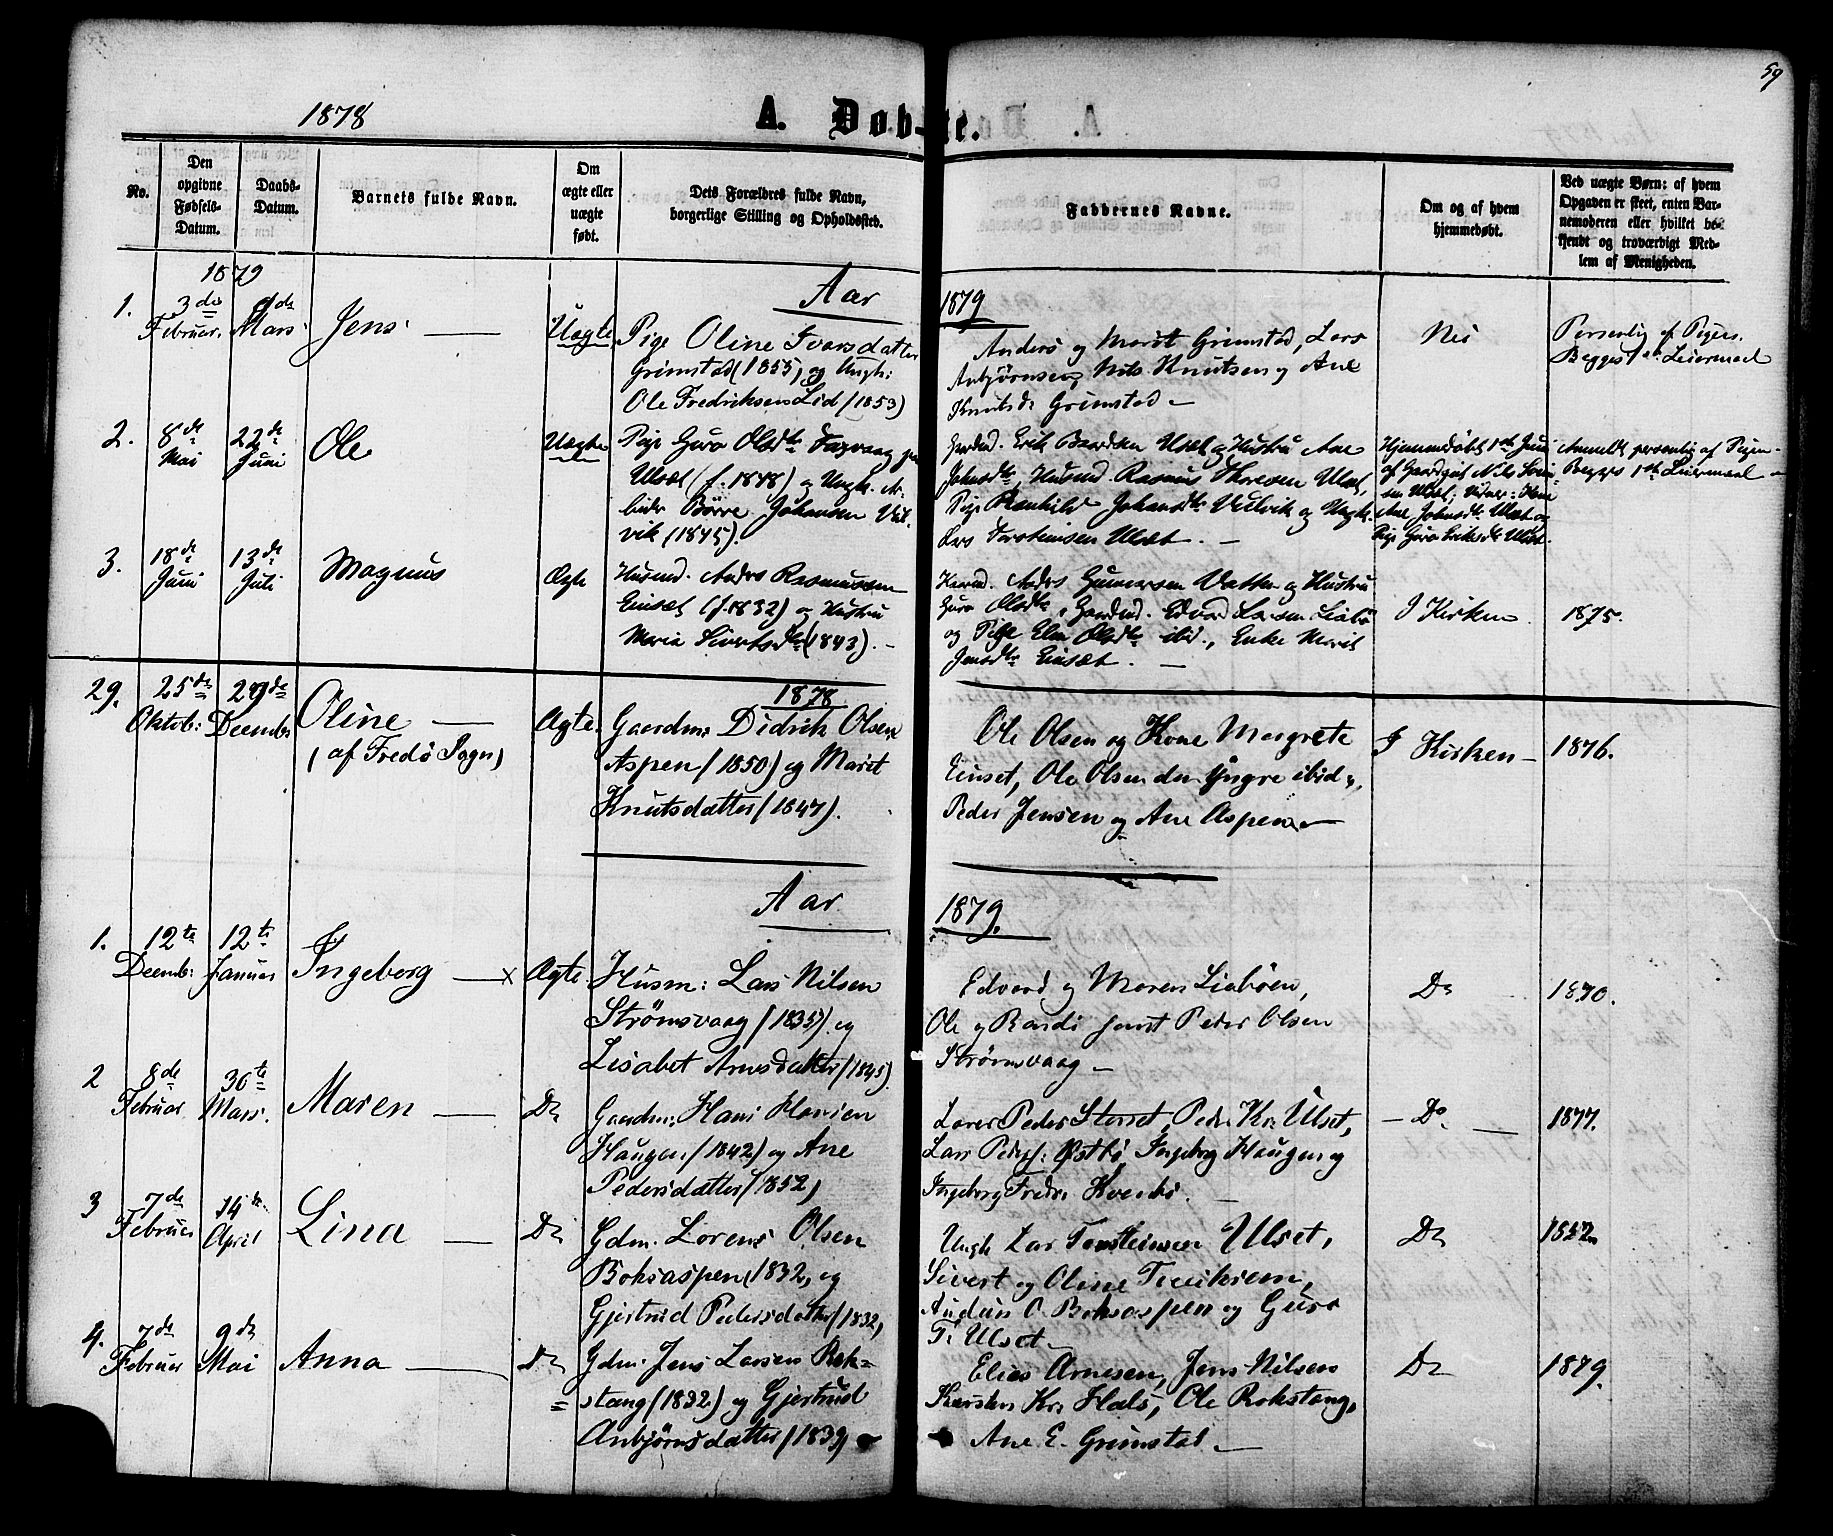 59
1878
A. Døb-te.
No.
Den opgivne Fødsels-Datum.
Daabs-Datum.
Barnets fulde Navn.
Om ægte eller uægte født.
Dets Forældres fulde Navn, borgerlige Stilling og Opholdssted.
Faddernes Navne.
Om og af hvem hjemmedøbt.
Ved uægte Børn: af hvem Opgaven er skeet, enten Barnemoderen eller hvilket bekjendt og troværdigt Medlem af Menigheden.
1879
Aar 1879
1. 3de Februar. 9de Mars. Jens. Uægte Pige Oline Ivarsdatter
Grimstad (1855) og Ungk:
Ole Fredriksen Lid (1853)
Anders og Marit Grimstad, Lars
Anbjørnsen, Nils Knutsen og Ane
Knutsd. Grimstad
Nei
Personlig af Pigen.
Begges 1ste Leiermaal
2. 8de Mai 22de Juni Ole Uægte Pige Guro Olsdtr
Ulset (f. 1848) og Ungk. Ar-
beider Børre Johansen Vul-
vik (1845).
Gardmd. Erik Baardsen Ulset og Hustru Ane
Johnsdtr, Husmd. Rasmus Ulset,
Pige Ranhild Johansdtr Vullvik og Ungk.
Lars Torsteinsen Ulset.
Hjemmedøbt 1ste Juni
af Gaardgut Nils
Ulset; Vidner: Kone
Ane Johnsdtr Ulset og
Pige Guro Eriksdtr Ulset.
Anmeldt personlig af Pigen
Begges 1ste Leiermaal
3. 18de Juni 13de Juli Magnus Ægte Husmd. Anders Rasmussen
Einset (f. 1832) og Hustru
Maria Sivertsdtr (1843).
Anders Gunnarsen Vatten og Hustru
Guro Olsdtr, Gardmd. Edvard Larsen Liabø
og Pige Elen Olsdtr ibid., Enke Marit
Jensdtr Einset.
I Kirken
1875.
29. 25de Oktob: 29de Decemb: Oline Ægte. 1878
(af Fredö Sogn)
Gaardm: Didrik Olsen
Aspen (1850) og Marit
Knutsdatter (1847).
Ole Olsen og Kone Margrete
Einset, Ole Olsen den Yngre ibid.
Peder Jensen og Ane Aspen
I Kirken
1876.
Aar 1879.
1. 12te Decemb: 12te Januar Ingeborg x Ægte. Husm: Lars Nilsen
Strömsvaag (1835) og
Lisabet Arnesdatter (1845).
Edvard og Maren Liabøen,
Ole og Randi samt Peder Olsen
Strömsvaag
Do
1870.
2 8de Februar 30te Mars. Maren Do Gaardm: Hans Hansen
Haugen (1842) og Ane
Pedersdatter (1852)
Peder Storset, Peder Kr. Ulset,
Lars Peders. Østbö, Ingeborg Haugen og
Ingeborg Fredr.
Do
1877.
3 7de Februar 14de April Lina Do Gdm. Lorens Olsen
Boksaspen (1832, og
Gjertrud Pedersdatter (1832,
Ungk Lars Torsteinsen Ulset,
Sivert og Oline
Audun O. Boksaspen og Guro
T. Ulset
Do
1852.
4. 7de Februar 9de Mai Anna Do Gdm. Jens Larsen Rok-
stang (1832) og Gjertrud
Anbjörnsdatter (1839)
Elias Arnesen, Jens Nilsen
Karsten Kr. Hals, Ole Rokstang,
Ane E. Grimstad
Do
1879.